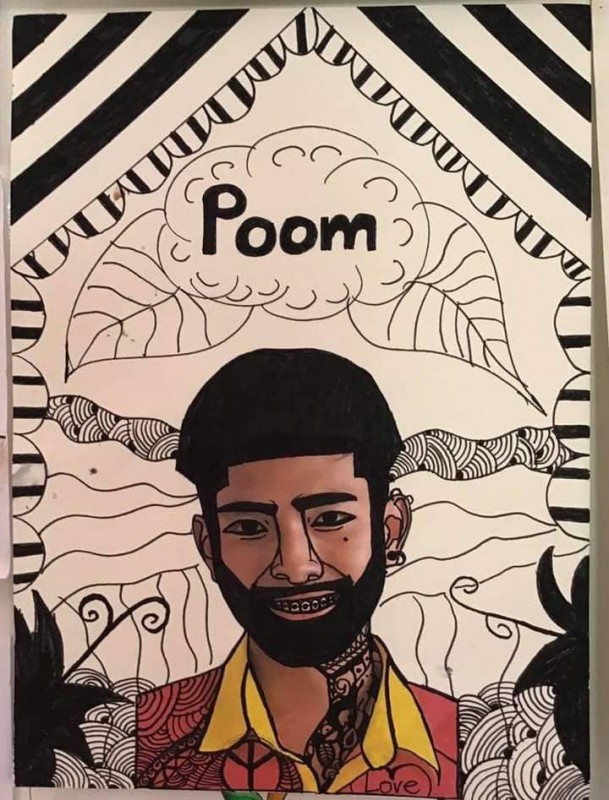 Poom
Love